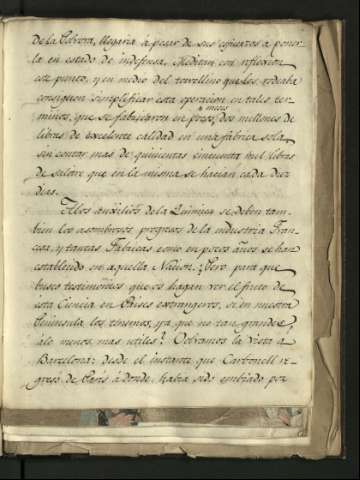 de la Polvora, llegaria à pesar de sus esfuerzos a poner-
la en estado de indefensa. Meditan con reflexion
este punto, y en medio del torvellino que les rodeaba
consiguen simplificar esta operacion en tales ter-
minos, que se fabricaron en pocos meses, dos millones de
libras de excelente calidad en una fabrica sola
sin contar mas de quinientas cincuenta mil libras
de salitre que en la misma se hacian cada diez
dias.
A los auxilios de la Quimica se deben tam-
bien los asombrosos progresos de la industria Fran-
cesa, y tantas Fabricas como en pocos años se han
establecido en aquella Nacion. ¿Pero para que
busco testimonios que os hagan ver el fruto de
esta Ciencia en Paises extrangeros, si en nuestra
Peninsula los tenemos, ya que no tan grandes,
à lo menos, mas utiles? Volvamos la vista a
Barcelona: desde el instante que Carbonell re-
gresó de Paris à donde habia sido embiado por